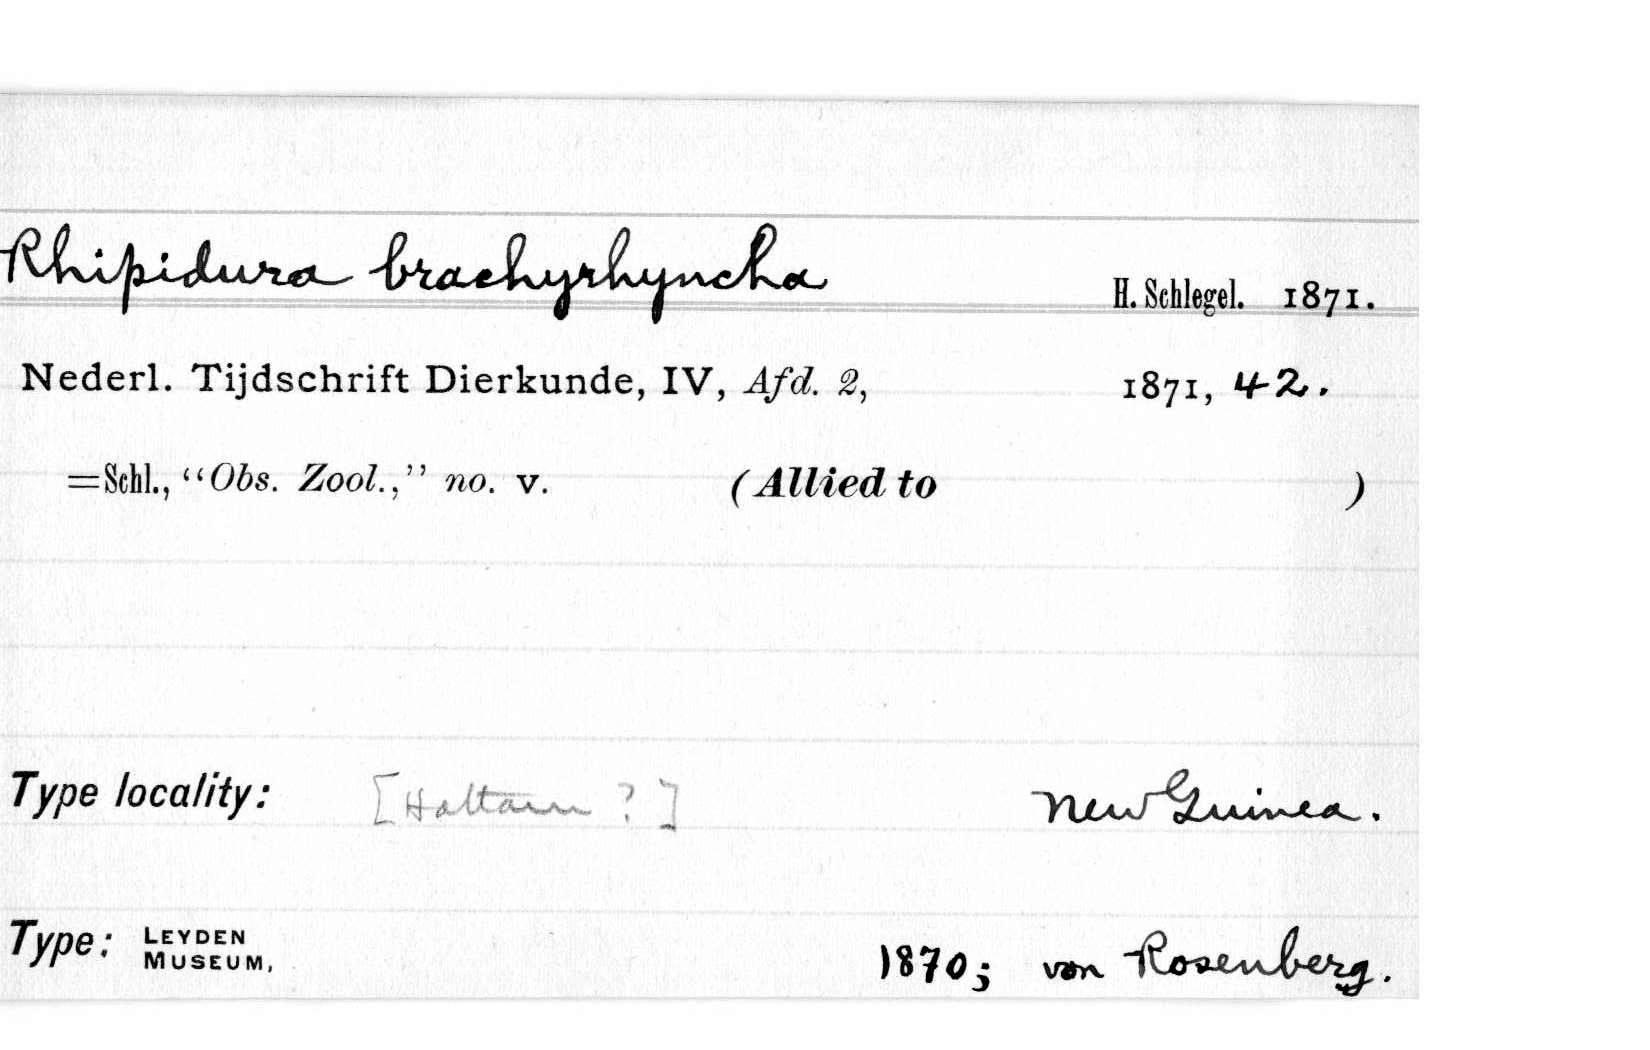 Rhipidura brachyrhyncha H. Schlegel. 1871.
Nederl. Tijdschrift Dierkunde, IV, Afd. 2, 1871, 42.
=Schl., “Obs. Zool.,” no. v. (Allied to )
Type locality: [Hattam ?] New Guinea.
Type: LEYDEN MUSEUM, 1870; von Rosenberg.